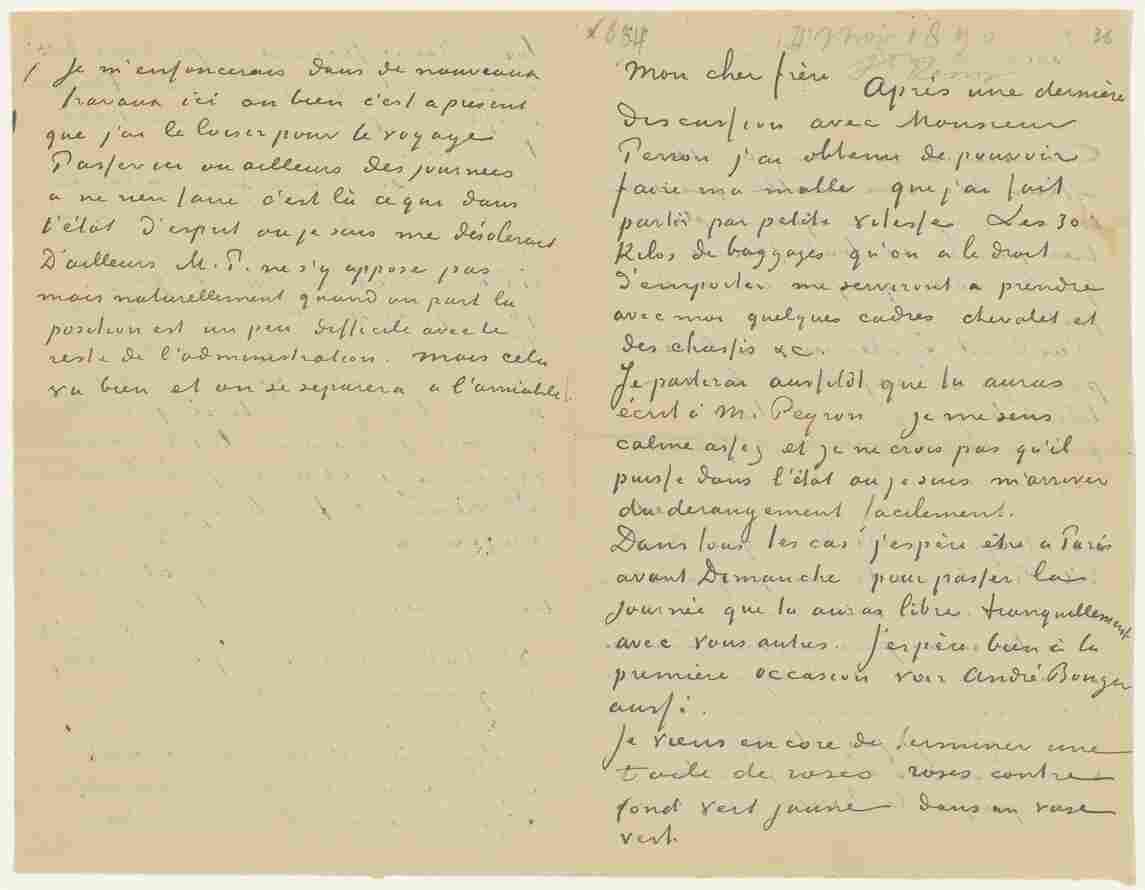 Je m'enfoncerais dans de nouveaux
travaux ici ou bien c'est a present
que j'ai le loisir pour le voyage
Passer ici ou ailleurs des journees
a ne rien faire c'est là ce qui dans
l'état d'esprit ou je suis me désolerait
D'ailleurs M. P. ne s'y oppose pas
mais naturellement quand on part la
position est un peu difficile avec le
reste de l'administration. mais cela
va bien et on se separera a l'amiable.
1654
36
Mon cher frère
Après une dernière
discussion avec Monsieur
Peyron j'ai obtenu de pouvoir
faire ma malle que j'ai fait
partir par petite vitesse Les 30
Kilos de baggages qu'on a le droit
d'emporter me serviront a prendre
avec moi quelques cadres chevalet et
des chassis &c.
Je partirai aussitôt que tu auras
écrit à M. Peyron je me sens
calme assez et je ne crois pas qu'il
puisse dans l'état ou je suis m'arriver
du derangement facilement.
Dans tous les cas j'espère être a Paris
avant Dimanche pour passer la
journée que tu auras libre tranquillement
avec vous autres. J'espère bien à la
première occasion voir André Bonger
aussi.
Je viens encore de terminer une
toile de roses roses contre
fond vert jaune dans un vase
vert.